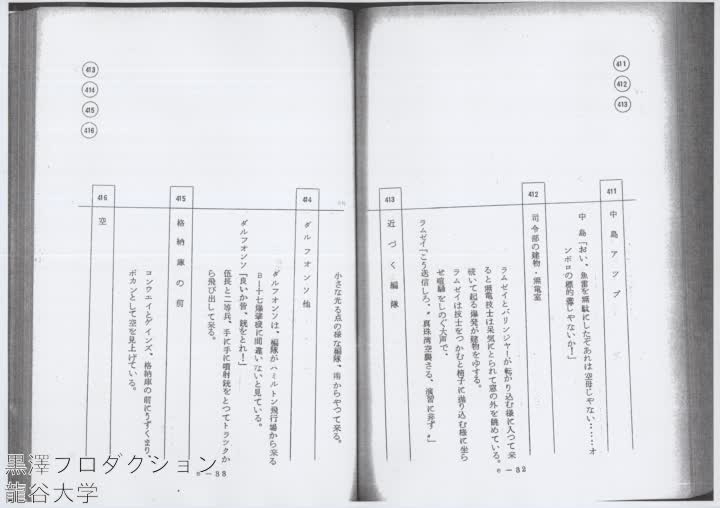 411
412
413
411
中島アップ
中島「おい、魚雷を無駄にしたぞあれは空母じゃない……オ
ンボロの標的艦じゃないか!」
412
司令部の建物・無電室
ラムゼイとバリンジャーが転がり込む様に入つて来
ると無電技士は呆気にとられて窓の外を眺めている。
続いて起る爆発が建物をゆする。
ラムゼイは技士をつかむと椅子に擲り込む様に坐ら
せ喧騒をしのぐ大声で、
ラムゼイ「こう送信しろ、〝真珠湾空襲さる、演習に非ず〟」
413
近づく編隊
e-32
413
414
415
416
小さな光る点の様な編隊、南からやつて来る。
414
ダルフオンソ他
ダルフオンソは、編隊がハミルトン飛行場から来る
B-十七爆撃機に間違いないと見ている。
ダルフオンソ「良いか皆、銃をとれ!」
伍長と二等兵、手に手に噴射銃をとつてトラックか
ら飛び出して来る。
415
格納庫の前
コンウエイとゲインズ、格納庫の前にうずくまり、
ポカンとして空を見上げている。
416
空
e-33
黒澤プロダクション
龍谷大学